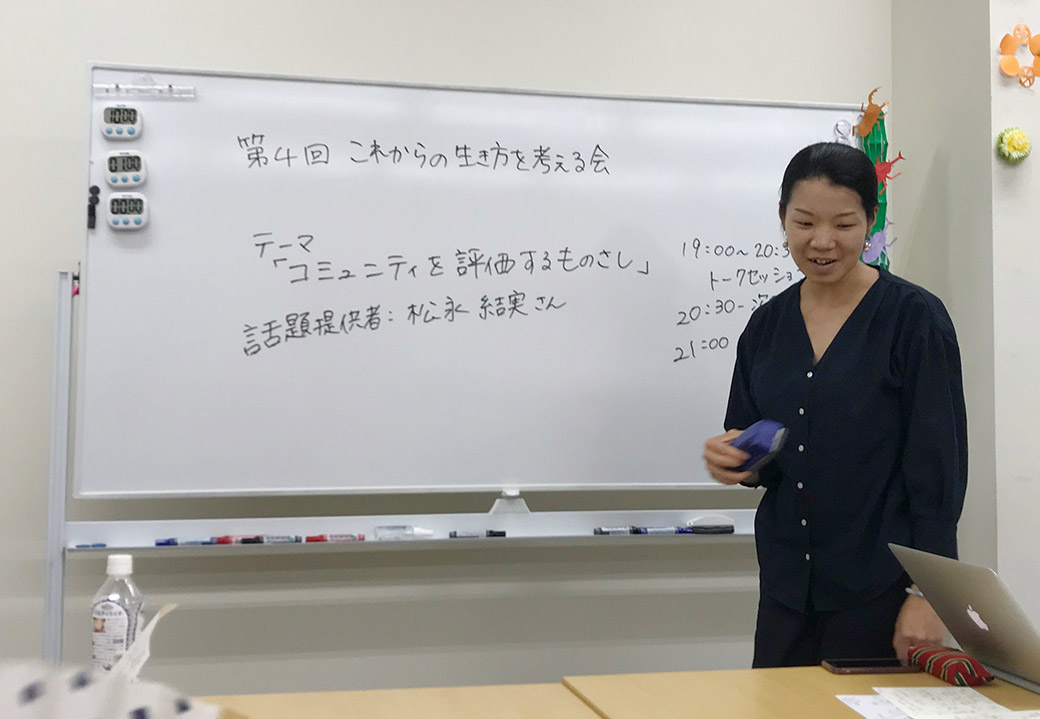 10:00
01:00
00:00
第4回 これからの生き方を考える会
テーマ
「コミュニティを評価するものさし」
話題提供者: 松永 結実さん
19:00~20:3
トークセッショ
20:30-
21:00